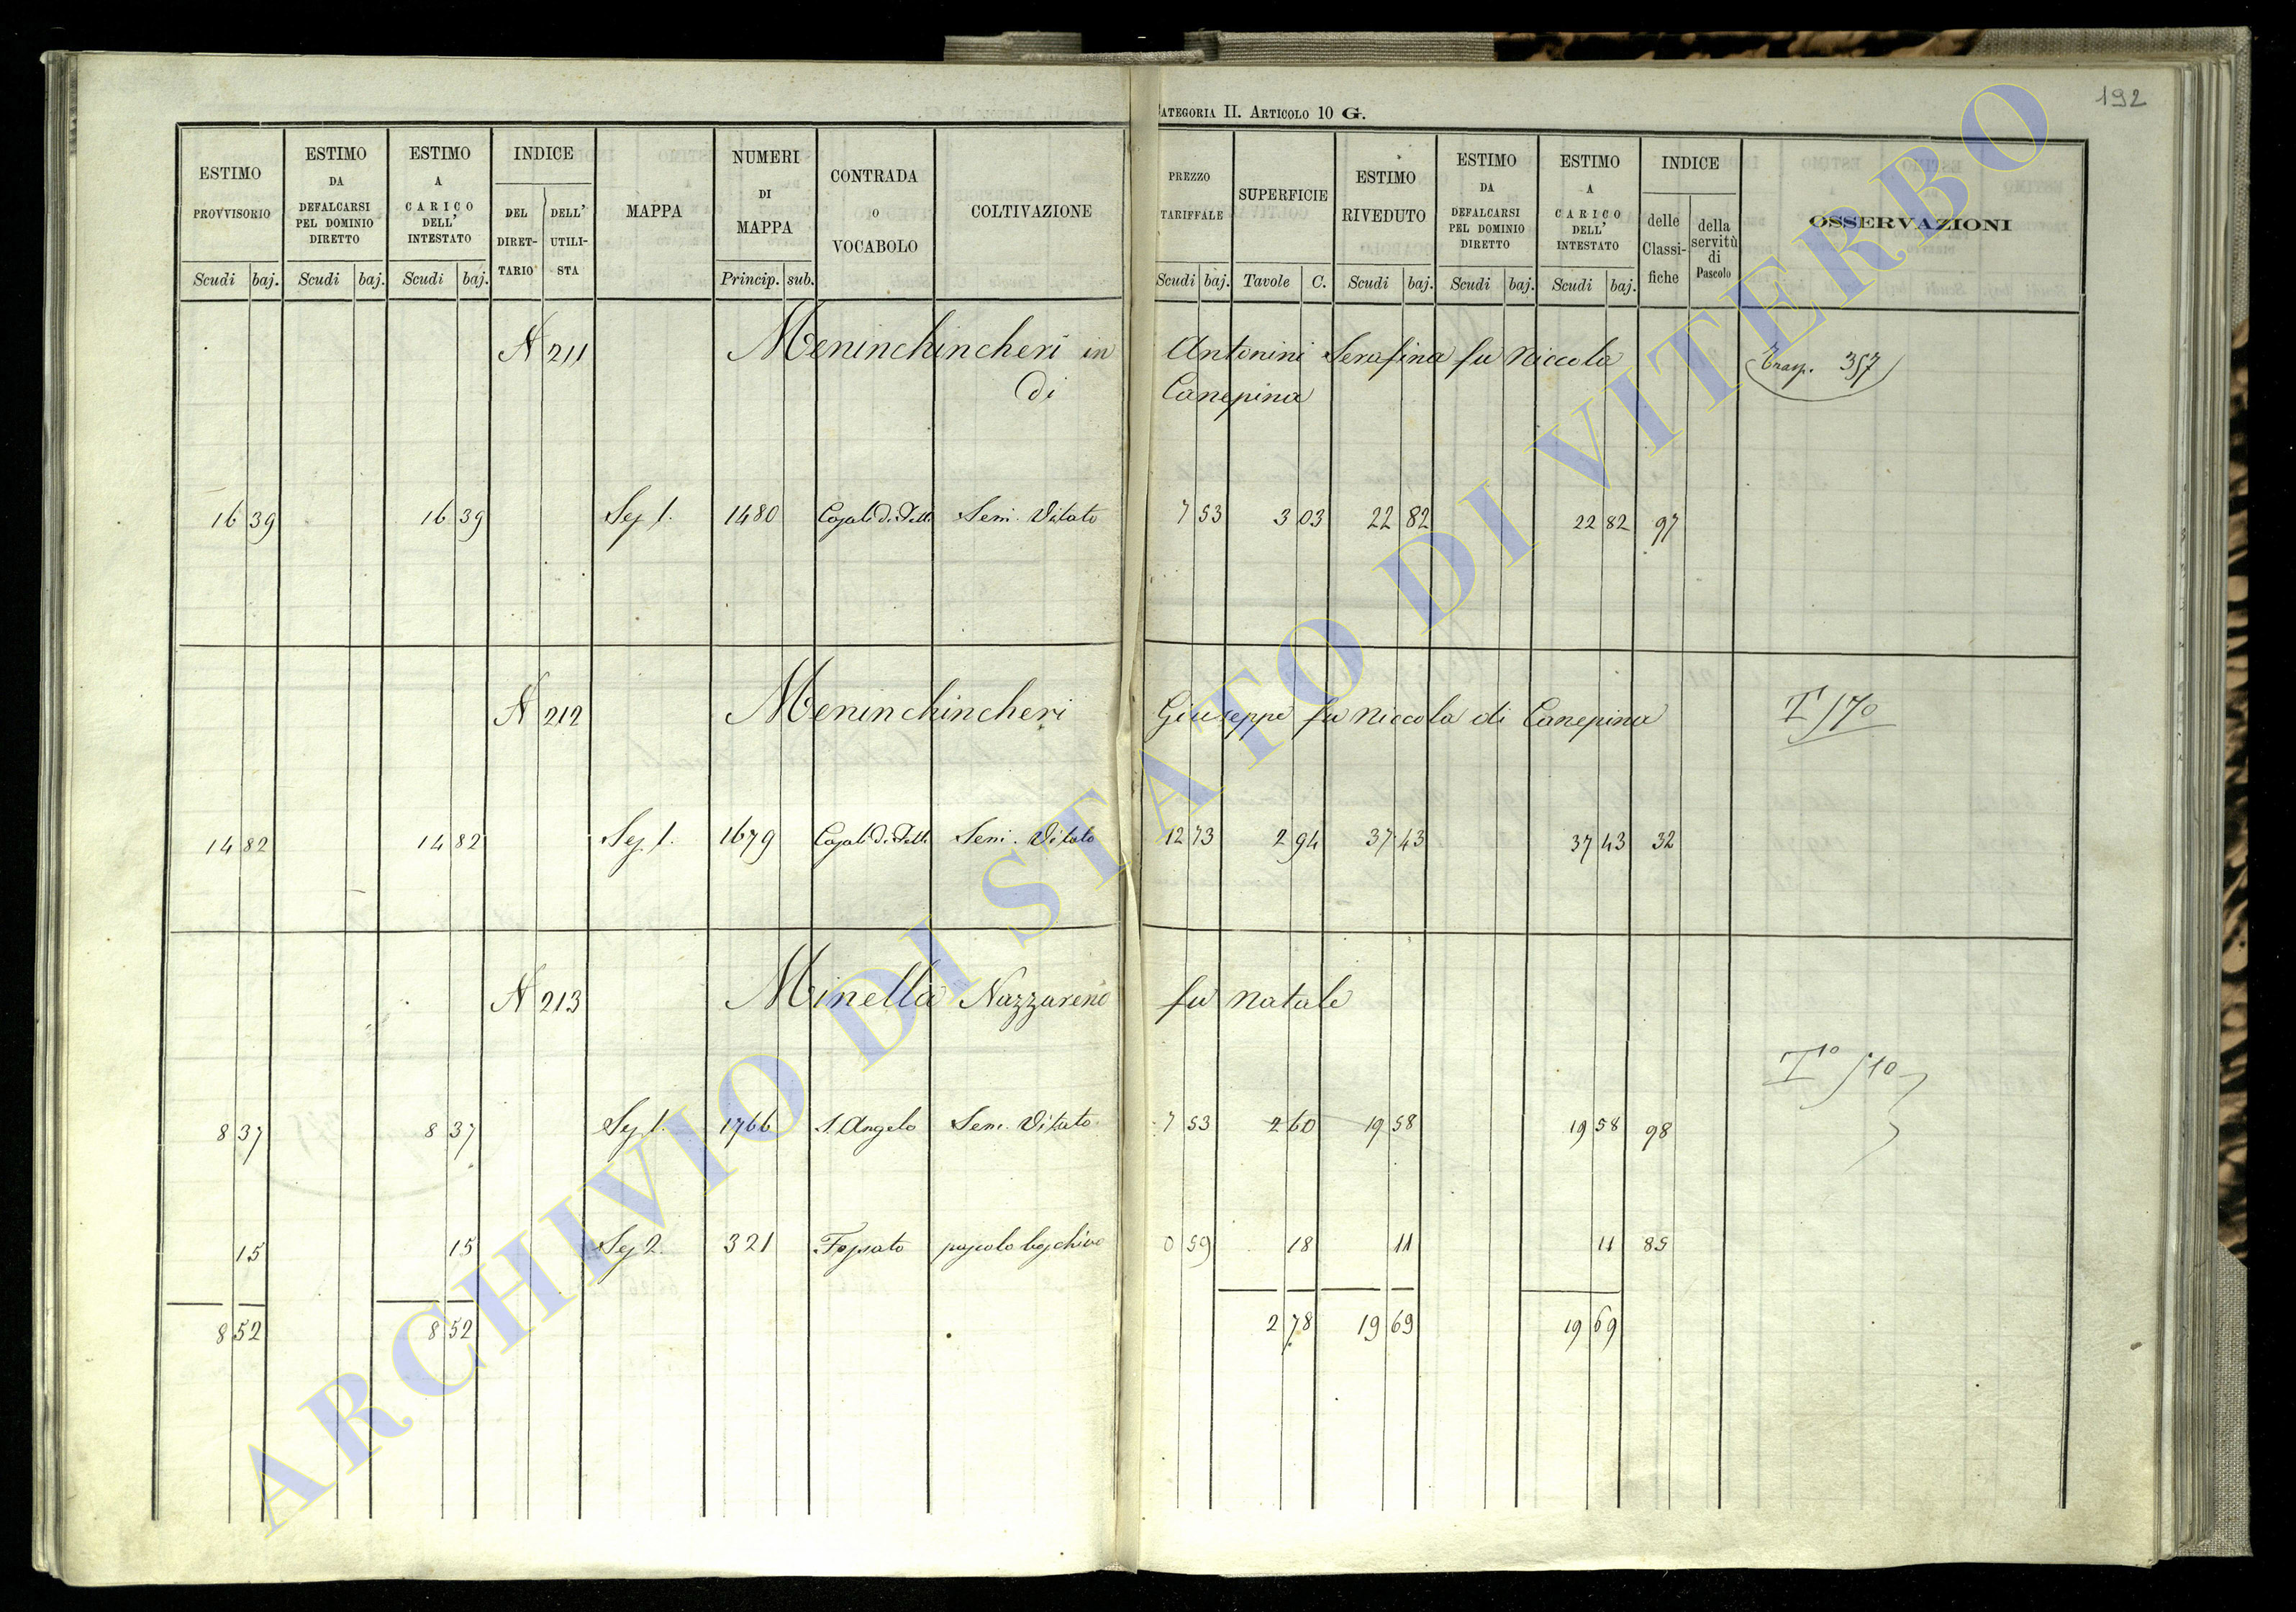 192
CATEGORIA II. ARTICOLO 10 G.
ESTIMO PROVVISORIO Scudi baj. ESTIMO DA DEFALCARSI PEL DOMINIO DIRETTO Scudi baj. ESTIMO A CARICO DELL' INTESTATO Scudi baj. INDICE DEL DIRETTARIO DELL' UTILISTA MAPPA NUMERI DI MAPPA Princip. sub. CONTRADA O VOCABOLO COLTIVAZIONE PREZZO TARIFFALE Scudi baj. SUPERFICIE Tavole C. ESTIMO RIVEDUTO Scudi baj. ESTIMO DA DEFALCARSI PEL DOMINIO DIRETTO Scudi baj. ESTIMO A CARICO DELL' INTESTATO Scudi baj. INDICE delle Classifiche della servitù di Pascolo OSSERVAZIONI
N 211 Meninchincheri in Antonini Serafina fu Niccola Trasp. 357
di Canepina
16 39 16 39 Sez 1. 1480 Semi. Vitato 7 53 3 03 22 82 22 82 97
N 212 Meninchincheri Giuseppe fu Niccola di Canepina
14 82 14 82 Sez. 1. 1679 Semi. Vitato 12 73 2 94 37 43 37 43 32
N 213 Minella Nazzareno fu Natale
8 37 8 37 Sez 1. 1766 S. Angelo Sem. Vitato 7 53 2 60 19 58 19 58 98
15 15 Sez 2. 321 Fossato pascolo boschivo 0 59 18 11 11 85
8 52 8 52 2 78 19 69 19 69
ARCHIVIO DI STATO DI VITERBO